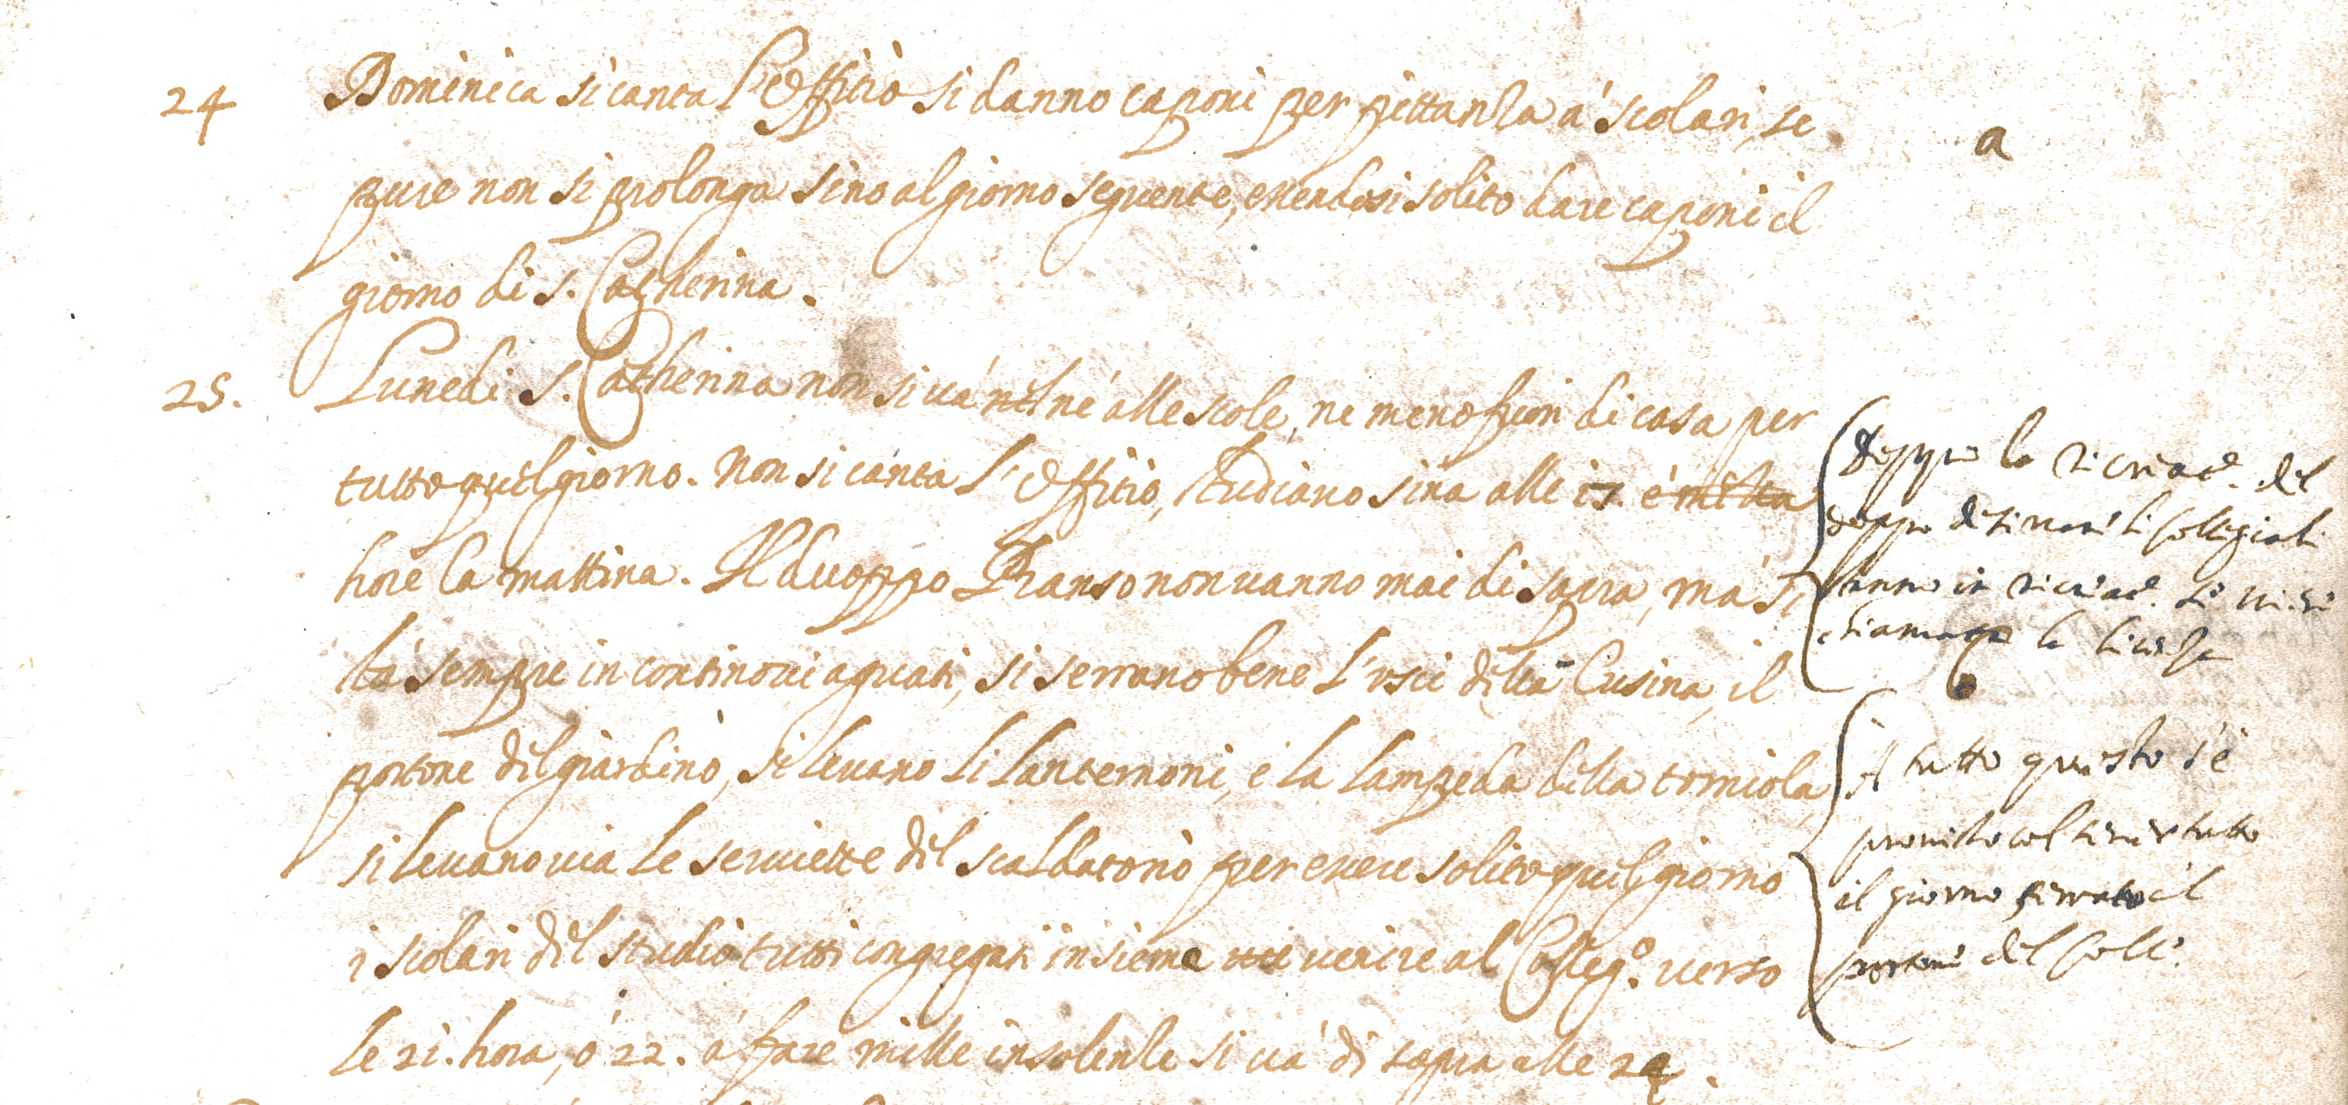 24 Dominica si canta l'Offitio si danno caponi per pittanza a' scolari, se
a
pure non si prolonga sino al giorno seguente, essendosi solito dare caponi il
giorno di S. Catherina.
25. Lunedi S. Catherina non si uà nel nè alle scole, ne meno fuori di casa per
tutto quel giorno. Non si canta l'Offitio, studiano sina alle 17. e mezza
hore la mattina. Il duoppo Pranso non uanno mai di sopra, ma si
stà sempre in continoui aguati, si serrano bene l'usci della Cusina, il
portone del giardino, si leuano li lanternoni, e la lampeda della torniola,
si leuano uia le seruiette del scaldatorio per essere solito quel giorno
i scolari del studio tutti congregati insieme uenire al Colleg.o uerso
le 21. hora, ò 22. à fare mille insolenze si uà di sopra alle 24.
Doppo la ricreat.e del
doppo desinare li Collegiali
uanno in ricreat.e
chiamata la licenza
A tutto questo s'è
prouisto col tener tutto
il giorno serrato il
portone del Coll.o